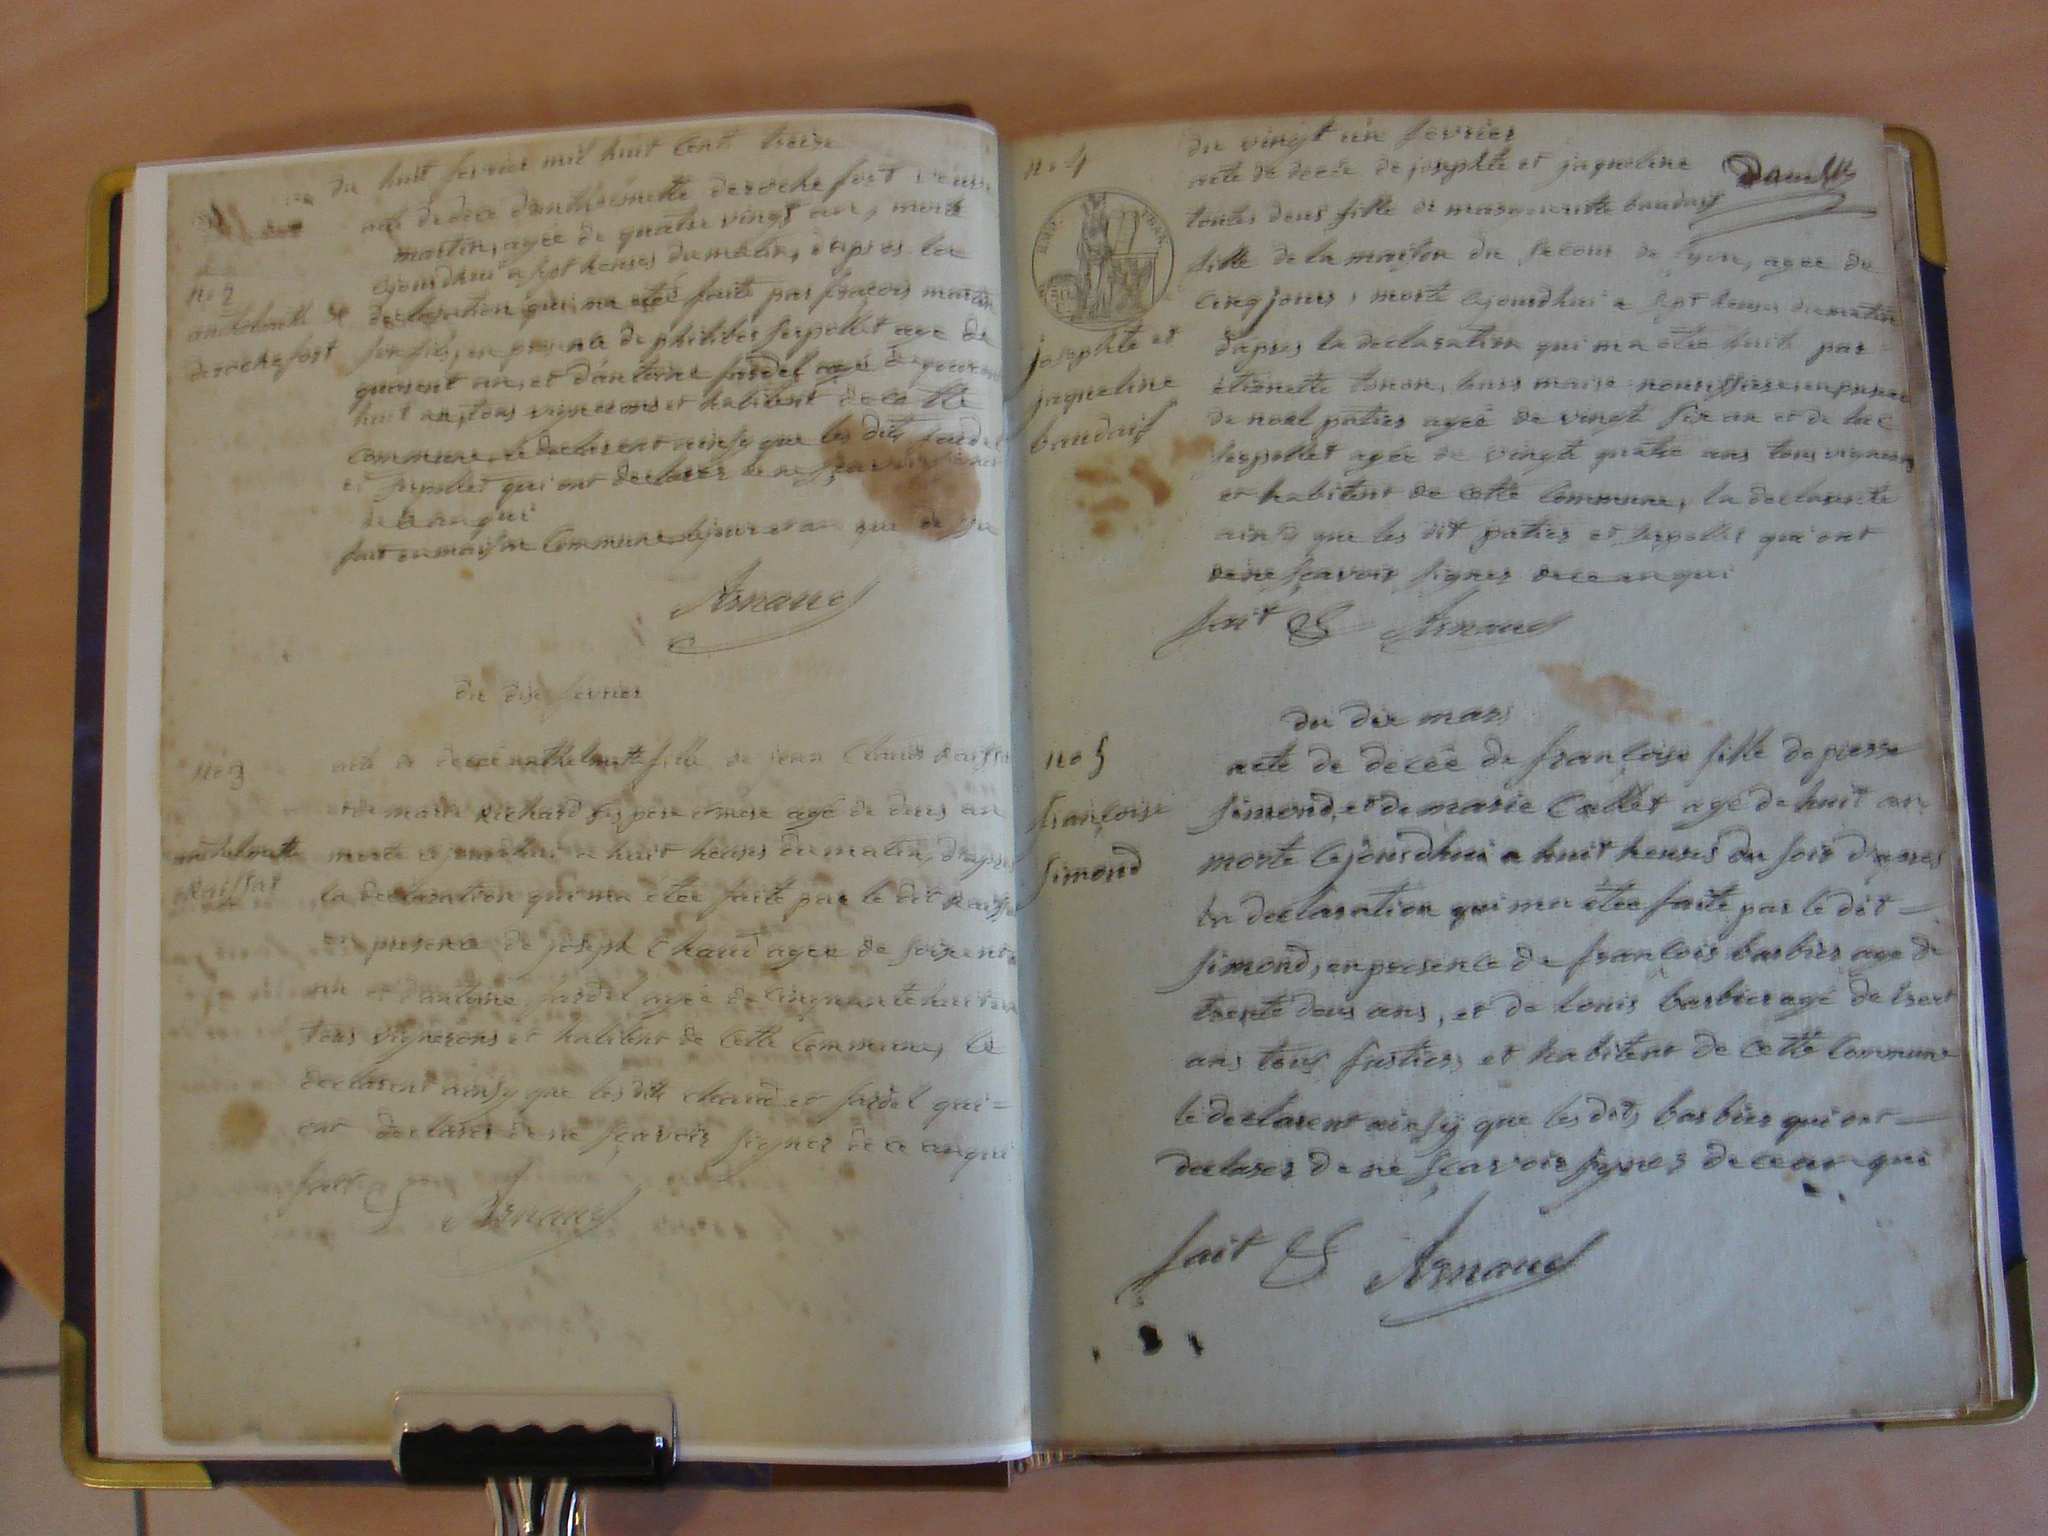 du huit fevrier mil huit cent treize
acte de décé danthremette derochefort veuve
martin, agée de quatre vingt an, morte
cejourdhui a sept heures du matin, dapres la
no 2
declaration qui ma etéé faite par fraçois martin
derochefort
son fils, en presence de philiber serpollet age de
quarent an, et dantoine fardel agé de
huit an, tous vignerons et habitent de cette
commune, le declarent ainsy que les dits fardel
et serpollet qui ont declarer de ne sçavoir signer
de ce anqui
fait en maison commune lejour et an que dessus
Arnaud
du dix fevrier
no 3
acte de decéé anthelmette fille de jean Claude Raissat
et de marie Richard ses pere et mere agé de deus an
anthelmette
morte cejourdhui a huit heures du matin, dapres
Raissat
la declaration qui ma étéé faite par le dit Raissat
en presence de joseph Chaud agee de soixente
an et dantoine fardel agéé de cinquante huit ans
tous vignerons et habitent de cette commune, le
declarent ainsy que les dits chaud et fardel qui =
ont declarer de ne sçavoir signer de ce anqui
fait & Arnaud
no 4
du vingt un fevrier
acte de decée de josephte et jaqueline
toutes deus fille de marguerite baudais
EMP. FRAN.
fille de la maison du secour de Lyon, agee de
cinq jours, morte cejourdhui a sept heures du matin
josephte et
dapres la declaration qui ma étéé fait par =
jaqueline
etienette tonon, leurs maire nourissiere en presence
baudais
de noel patier agéé de vingt six an et de luc
serpollet agéé de vingt quatre ans tous vignerons
et habitent de cette commune, la declarente
ainsy que les dit patier et serpollet qui ont
de ne sçavoir signer de ce anqui
fait & Arnaud
du dix mars
no 5
acte de decéé de françoise fille de pierre
françoise
simond, et de marie Collet agé de huit an
simond
morte cejourdhui a huit heures du soir dapres
la declaration qui ma étéé faite par le dit —
simond, en presence de françois barbier age de
trente deus ans, et de louis barbier agé de trent
ans tous fustiers et habitent de cette commune
le declarent ainsÿ que les dits barbier qui ont —
declarer de ne sçavoir signer de ce anqui
fait & Arnaud